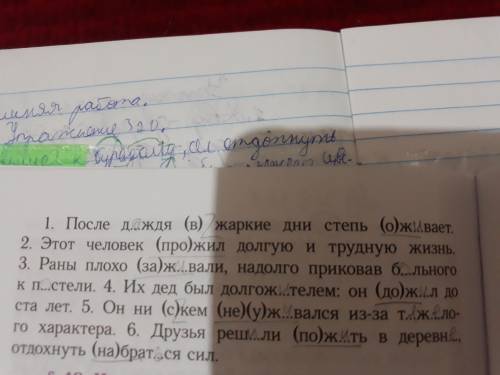 шняя работа.
Упражнение 320.
отдохнуть
1. После д..ждя (в) жаркие дни степь (о)ж..вает.
2. Этот человек (про)жил долгую и трудную жизнь.
3. Раны плохо (за)ж..вали, надолго приковав б..льного
к п..стели. 4. Их дед был долгож..телем: он (до)ж..л до
ста лет. 5. Он ни (с)кем (не)(у)ж..вался из-за т..ж..ло-
го характера. 6. Друзья реш..ли (по)ж..ть в деревн..,
отдохнуть (на)брат..ся сил.